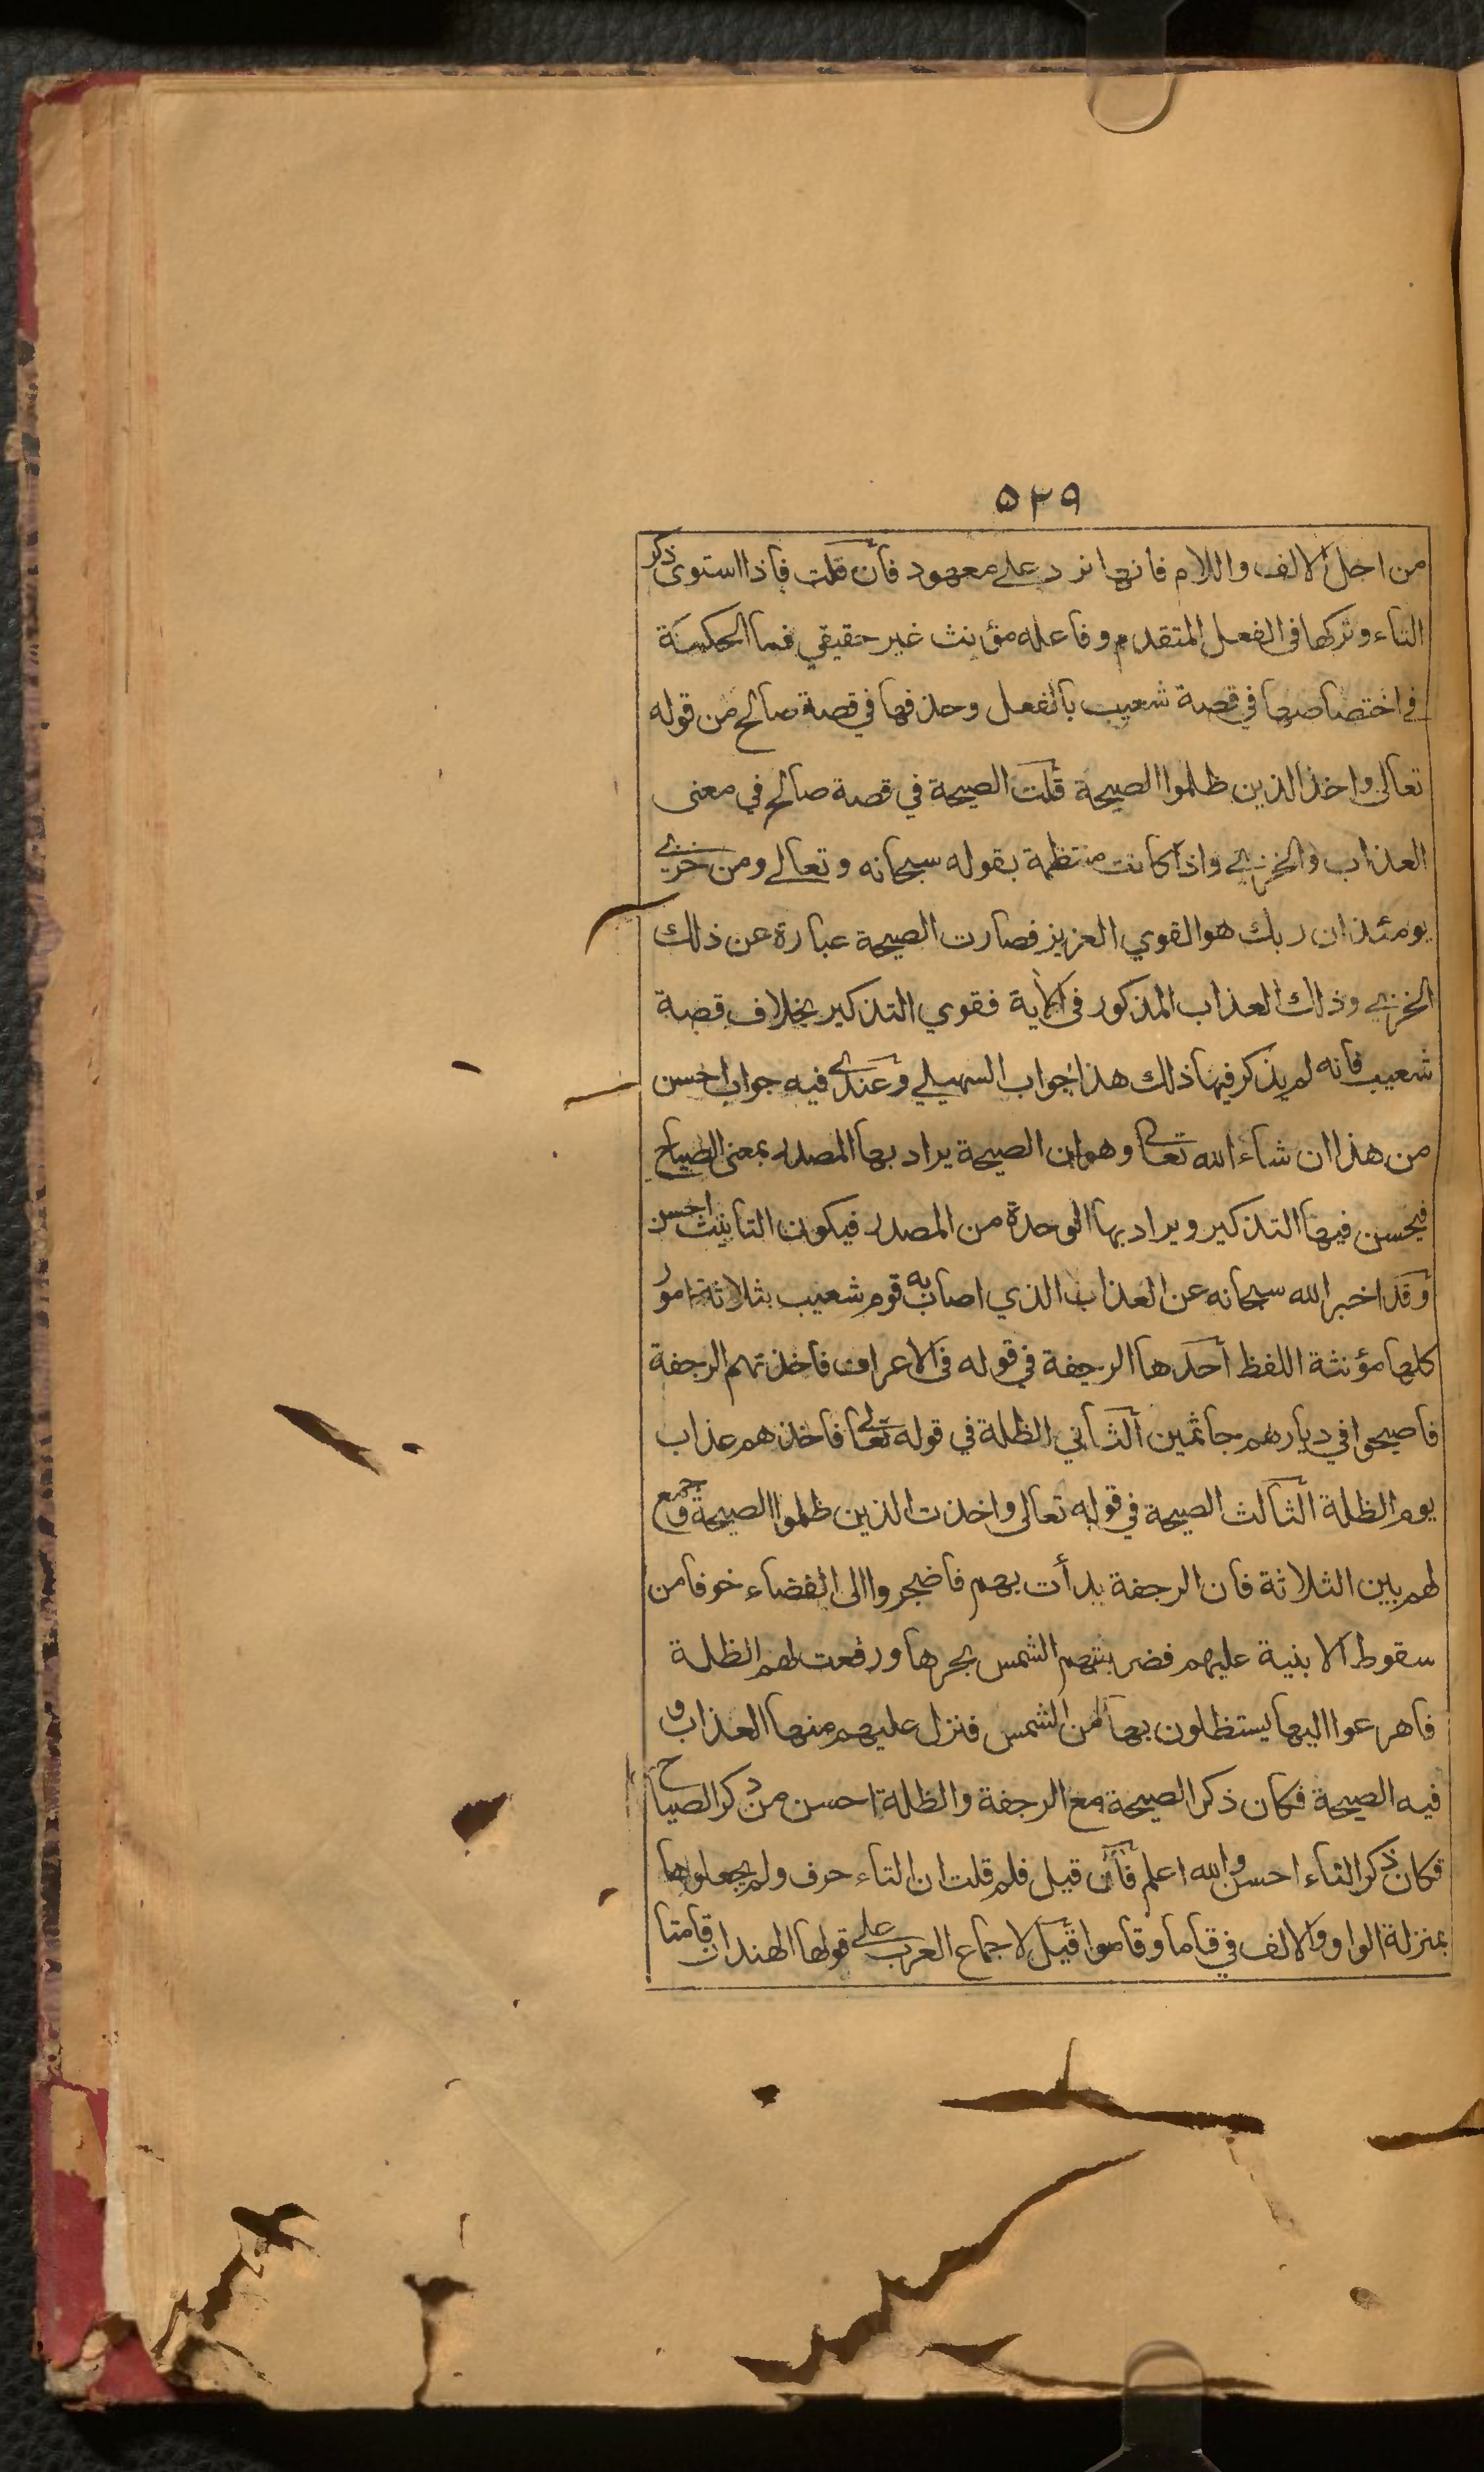 ٥٢٩
من اجل الالف واللام فانها ترد على معهود فأن قلت فاذا استوى ذكر
التاء وتركها فى الفعل المتقدم وفاعله مؤنث غير حقيقي فما الحكمة
في اختصاصها في قصة شعيب بالفعل وحذفها في قصة صالح من قوله
تعالى واخذ الذين ظلموا الصيحة قلت الصيحة في قصة صالح في معنى
العذاب والخزي واذا كانت منتظمة بقوله سبحانه وتعالى ومن خزي
يومئذ ان ربك هو القوي العزيز فصارت الصيحة عبارة عن ذلك
الخزي وذلك العذاب المذكور فى الاية فقوي التذكير بخلاف قصة
شعيب فانه لم يذكر فيها ذلك هذا جواب السهيلي وعندي فيه جواب احسن
من هذا ان شاء الله تعالى وهو ان الصيحة يراد بها المصدر بمعنى الصياح
فيحسن فيها التذكير ويراد بها الوحدة من المصدر فيكون التأنيث احسن
وقد اخبر الله سبحانه عن العذاب الذي اصاب به قوم شعيب بثلاثة امور
كلها مؤنثة اللفظ احدها الرجفة في قوله فى الاعراف فاخذتهم الرجفة
فاصبحوا في ديارهم جاثمين الثاني الظلة في قوله تعالى فاخذهم عذاب
يوم الظلة الثالث الصيحة في قوله تعالى واخذت الذين ظلموا الصيحة وجمع
لهم بين الثلاثة فان الرجفة بدأت بهم فاضجروا الى الفضاء خوفا من
سقوط الابنية عليهم فضربتهم الشمس بحرها ورفعت لهم الظلة
فاهرعوا اليها يستظلون بها من الشمس فنزل عليهم منها العذاب و
فيه الصيحة فكان ذكر الصيحة مع الرجفة والظلة احسن من ذكر الصياح
فكان ذكر التاء احسن والله اعلم فأن قيل فلم قلت ان التاء حرف ولم يجعلوها
بمنزلة الواو والالف في قاما وقاموا قيل لاجماع العرب على قولها الهندان قامتا